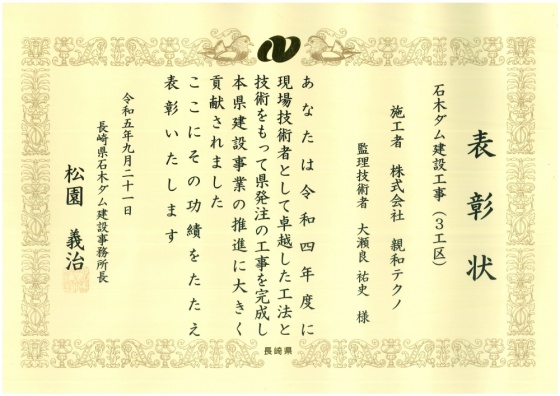 表彰状
石木ダム建設工事（3工区）
施工者　株式会社　親和テクノ
監理技術者　大瀬良　祐史　様
あなたは令和四年度に
現場技術者として卓越した工法と
技術をもって県発注の工事を完成し
本県建設事業の推進に大きく
貢献されました
ここにその功績をたたえ
表彰いたします
令和五年九月二十一日
長崎県石木ダム建設事務所長
松園　義治
長崎県